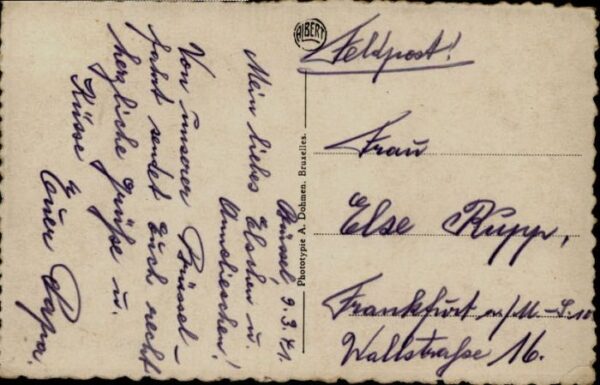 Brüssel, 9.3.41.
Mein liebes Elschen u.
Annchieschen!
Von unserer Brüssel-
fahrt sendet Euch recht
herzliche Grüße u.
Küsse
Euer Papa.
ALBERT
Phototypie A. Dohmen, Bruxelles.
Feldpost!
Frau
Else Rupp,
Frankfurt a/M-S. 10
Wallstraße 16.